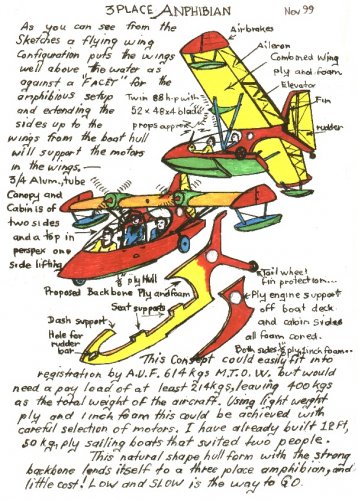 3 PLACE ANPHIBIAN
Nov 99
As you can see from the
Sketches a flying wing
Configuration puts the wings
well above the water as
against a "FACET" for the
amphibious setup
and extending the
sides up to the
wings from the boat hull
will support the motors
in the wings.
3/4 Alum, tube
Canopy and
Cabin is of
two sides
and a top in
perspex one
side lifting
Airbrakes
Aileron
Combined Wing
ply and foam
Elevator
Fin
rudder
Twin 88 h.p with
52 x 48 x 4 blade
props approx
ply Hull
Proposed Backbone Ply and foam
Seat supports
Dash support
Hole for
rudder
bar.
Tail wheel
fin protection...
Ply engine support
off boat deck
and cabin sides
all foam cored.
Both sides ply 1 inch foam..
This Concept could easily fit into
registration by A.U.F. 614 kgs M.T.O.W. but would
need a pay load of at least 214 kgs, leaving 400 kgs
as the total weight of the aircraft. Using light weight
ply and 1 inch foam this could be achieved with
careful selection of motors. I have already built 12 Ft,
50 kg, ply sailing boats that suited two people.
This natural shape hull form with the strong
backbone lends itself to a three place amphibian, and
little cost! Low and slow is the way to GO.